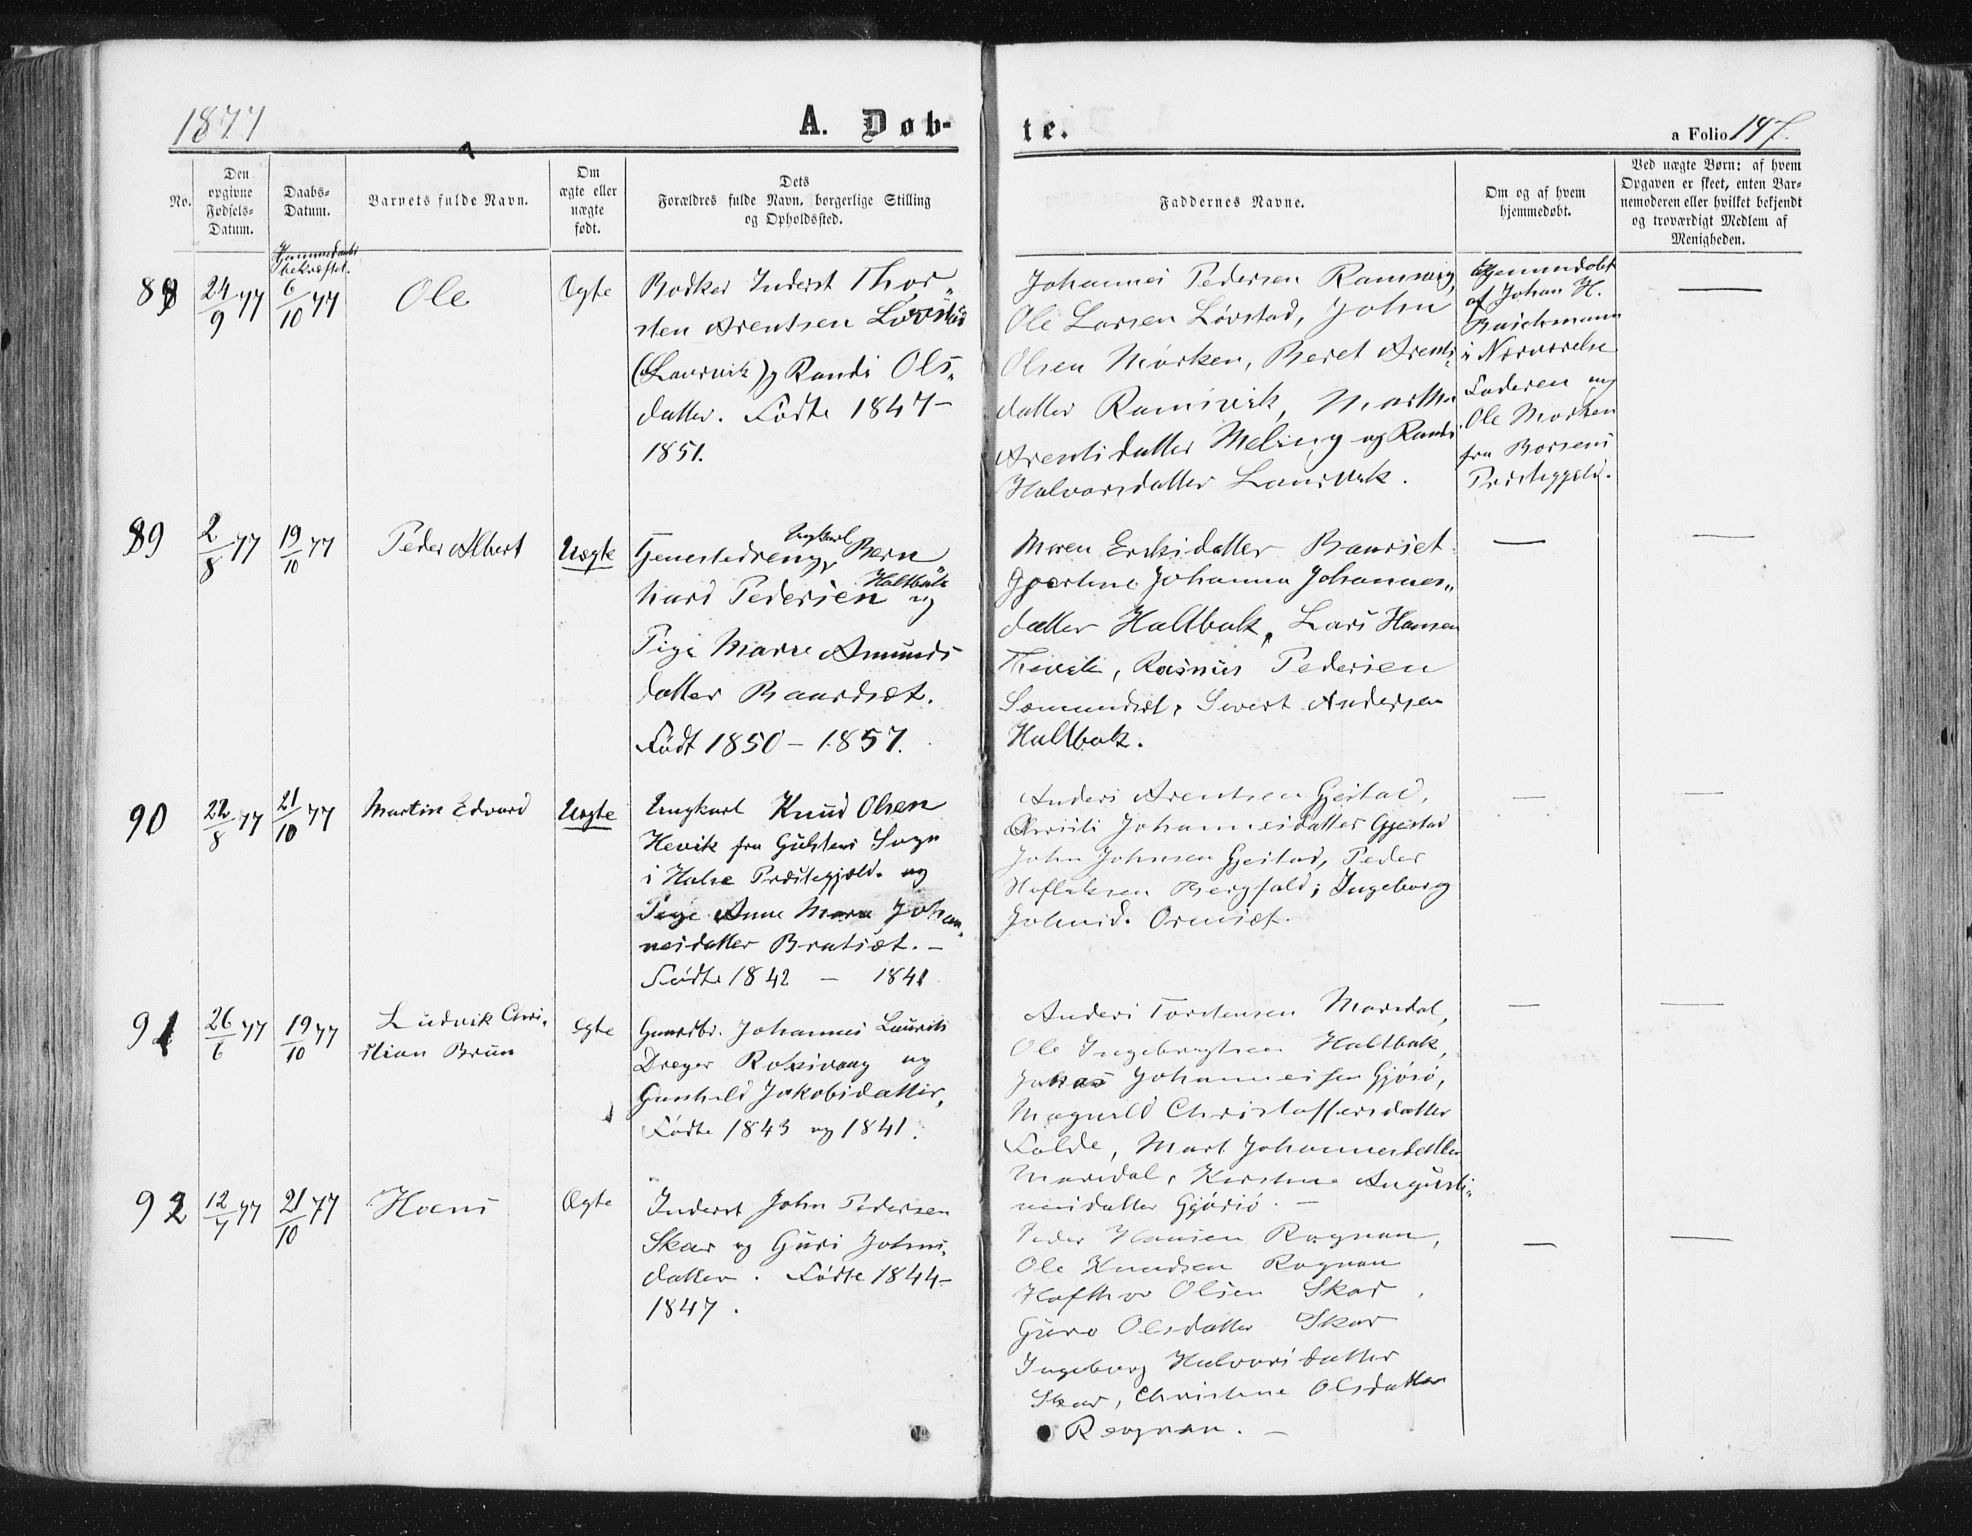 1877
A. Døb-
te.
a Folio 147.
No.
Den
opgivne
Fødsels-
Datum.
Daabs-
Datum.
Barnets fulde Navn.
Om
ægte eller
uægte
født.
Dets
Forældres fulde Navn, borgerlige Stilling
og Opholdssted.
Faddernes Navne.
Om og af hvem
hjemmedøbt.
Ved uægte Børn: af hvem
Opgaven er skeet, enten Bar-
nemoderen eller hvilket bekjendt
og troværdigt Medlem af
Menigheden.
88
24/9 77
bekræftet.
6/10 77
Ole
Ægte
Bødker Inderst Thor-
sten Arentsen Løvstad
(Laurvik) og Randi Ols-
datter. Fødte 1847-
1851.
Johannes Pedersen Ramsvig,
Ole Larsen Løvstad, John
Olsen Mørken, Beret Arents-
datter Ramsvik, Marthe
Arentsdatter Meling og Randi
Halvorsdatter Laurvik.
Hjemmedøbt
af Johan H.
Buschmann
i Nærværelse
Faderen og
Ole Morken
fra Borsens
Præstegjeld.
89
2/8 77
19/10 77
Peder Albert
Uægte
Ungkarl
Tjenestedreng, Bern
hard Pedersen Haltbak og
Pige Marie Amunds
datter Baardsæt.
Født 1850 - 1857.
Maren Eriksdatter Baarset
Johanna Johannes-
datter Haltbak, Lars Hansen
Thevik, Rasmus Pedersen
Sæmundset, Sivert Andersen
Haltbak.
90
22/8 77
21/10 77
Martin Edvard
Uægte
Ungkarl Knud Olsen
Hevik fra Gulsteins Sogn
i Halse Præstegjæld. og
Pige Anne Marie Johan-
nesdatter Bratsæt. -
Fødte 1842 - 1841
Anders Arentsen Gjestad,
Johannesdatter Gjestad
John Johnsen Gjestad, Peder
Bergfald, Ingeborg
Johnsd. Ormsæt.
91
26/6 77
19/10 77
Ludvik Chri-
stian Brun
Ægte
Gaardbr. Johannes Laurits
Dreyer Roksvaag og
Gunhild Jakobsdatter,
Fødte 1843 og 1841.
Anders Torstensen Marsdal,
Ole Ingebrigtsen Haltbak,
Johannessen Gjøsø,
Magnild Christoffersdatter
Folde, Marit Johannesdatter
Marsdal, Kirstine Augusti-
nusdatter Gjøsø. -
92
12/7 77
21/10 77
Hans
Ægte
Inderst John Pedersen
Skar og Guri Johns-
datter. Fødte 1844-
1847.
Peder Hansen Rognan,
Ole Knudsen Rognan
Hafthor Olsen Skar,
Guro Olsdatter Skar
Ingeborg Halvorsdatter
Skar, Christine Olsdatter
Rognan. -